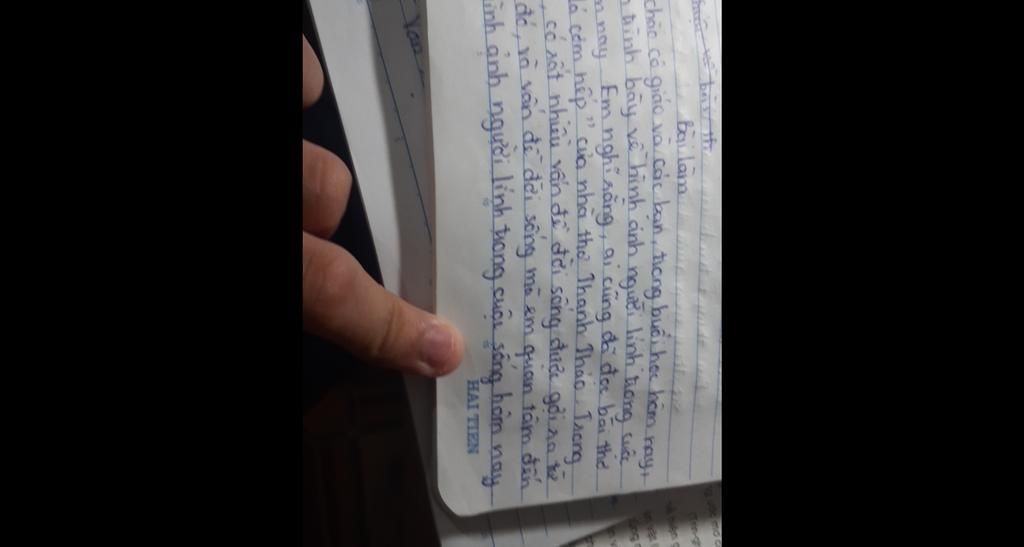 Bài làm
chào cô giáo và các bạn, trong buổi học hôm nay,
trình bày về hình ảnh người lính trong cuộc
nay Em nghĩ rằng, ai cũng đã đọc bài thơ
cơm nếp" của nhà thơ Thanh Thảo Trong
, có rất nhiều vấn đề đời sống được gợi ra từ
đó, và vấn đề đời sống mà em quan tâm đến
ảnh người lính trong cuộc sống hôm nay
HAI TIEN